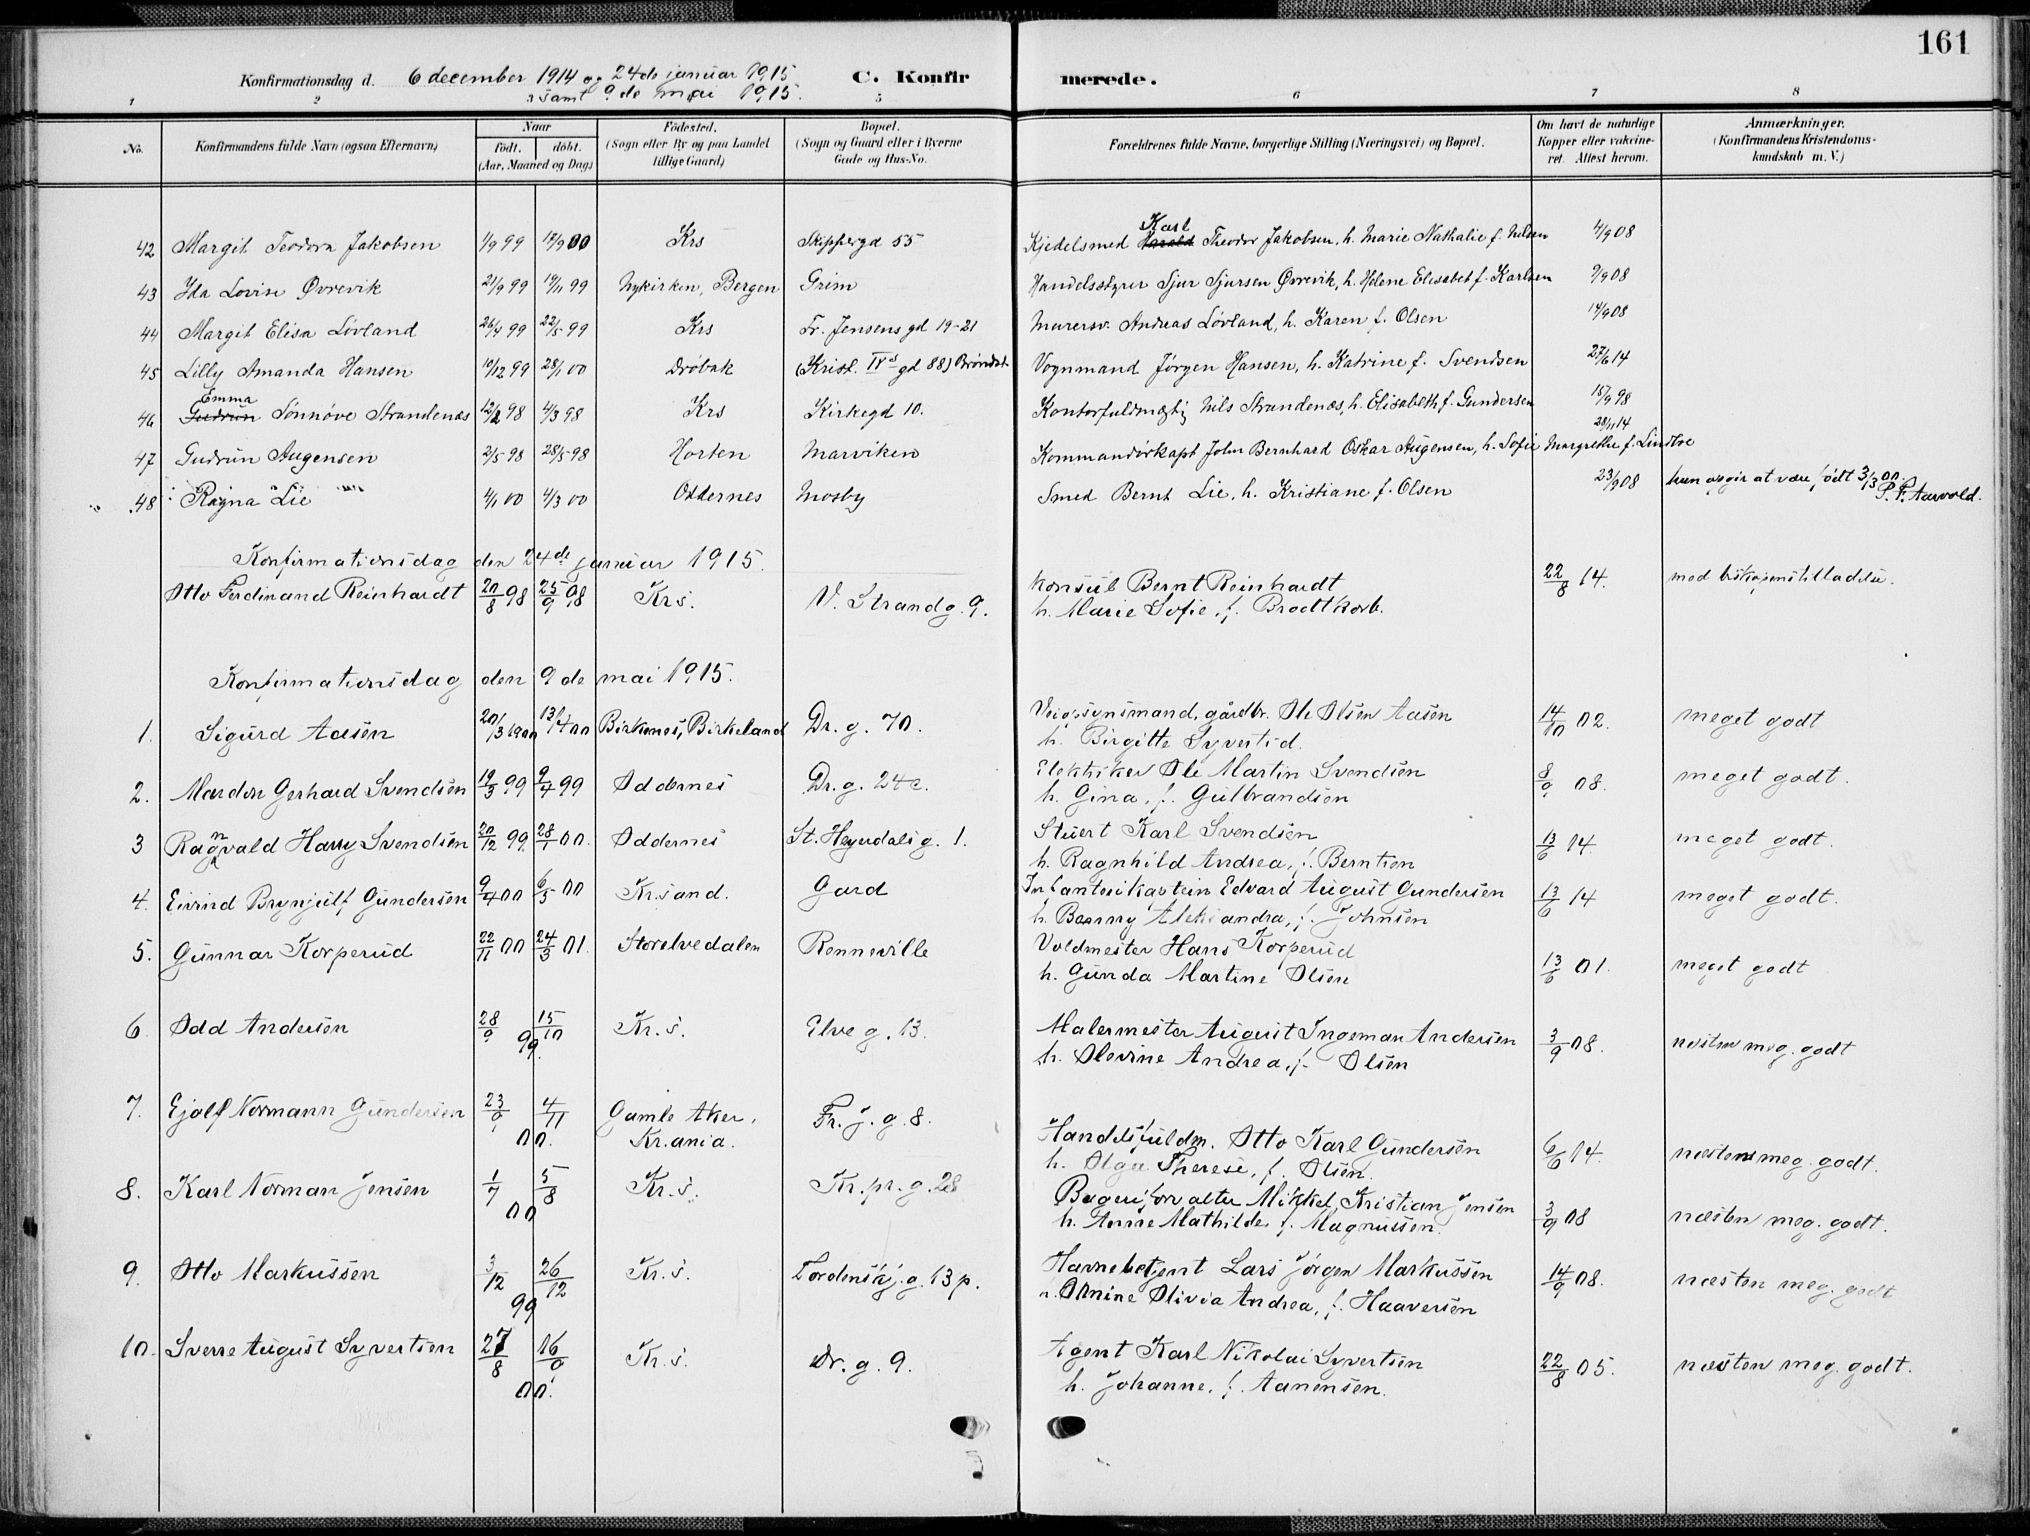 161
Konfirmationsdag d. 6 december 1914 og 24de januar 1915
samt 9de mai 1915.
C. Konfirmerede.
1 2 5 6 7 8
No. Konfirmandens fulde Navn (ogsaa Efternavn) Naar født. døbt. (Aar, Maaned og Dag) Fødested. (Sogn eller By og paa Landet tillige Gaard) Bopæl. (Sogn og Gaard eller i Byerne Gade og Hus-No. Forældrenes fulde Navne, borgerlige Stilling (Næringsvei) og Bopæl. Om havt de naturlige Kopper eller vakcineret. Attest herom. Anmærkninger. (Konfirmandens Kristendomskundskab m. V.)
42 Margit Teodora Jakobsen 1/9 99 17/9 00 Krs Skippergd 55 Kjedelsmed Harald Karl Theodor Jakobsen, h. Marie Nathalie f. Nilsen 4/9 08
43 Ida Lovise Øvrevik 21/9 99 19/11 99 Nykirken, Bergen Grim Handelsstyrer Sjur Sjursen Øvrevik, h. Helene Elisabet f. Karlsen 9/9 08
44 Margit Elisa Løvland 26/4 99 22/5 99 Krs Fr. Jensens gd 19-21 Murersv. Andreas Løvland, h. Karen f. Olsen 14/9 08
45 Lilly Amanda Hansen 10/12 99 28/1 00 Drøbak (Krist. IVs gd 88) Brøndst. Vognmand Jørgen Hansen, h. Katrine f. Svendsen 27/6 14
46 Gudrun Emma Sønnøve Strandenæs 12/2 98 4/3 98 Krs Kirkegd 10. Kontorfuldmægtig Nils Strandenæs, h. Elisabeth f. Gundersen 15/9 98
47 Gudrun Augensen 2/5 98 28/5 98 Horten Marviken Kommandørkapt John Bernhard Oskar Augensen, h. Sofie Margrethe f. Lindtve 28/11 14
48 Ragna Lie 4/1 00 4/3 00 Oddernes Mosby Smed Bernt Lie, h. Kristiane f. Olsen 23/9 08 hun opgir at være født 3/3 00. P. F. Aarvold.
Konfirmationsdag den 24de januar 1915.
Otto Ferdinand Reinhardt 20/8 98 25/9 98 Krs. V. Strandg. 9. Konsul Bernt Reinhardt 22/8 14. med biskopens tilladelse.
h. Marie Sofie, f. Brodtkorb.
Konfirmationsdag den 9de mai 1915.
1. Sigurd Aasen 20/3 1900 13/4 00 Birkenes, Birkeland Dr. g. 70. Veiopsynsmand, gårdbr. Ole Olsen Aasen 14/10 02. meget godt
h. Birgitte Syvertsd.
2. Mardon Gerhard Svendsen 19/3 99 9/4 99 Oddernes Dr. g. 24 c. Elektriker Ole Martin Svendsen 8/9 08. meget godt.
h. Gina, f. Gulbrandsen
3 Ragnvald Harry Svendsen 20/12 99. 28/1 00. Oddernes St. Heyerdalsg. 1. Stuert Karl Svendsen 13/6 14. meget godt.
h. Ragnhild Andrea, f. Berntsen
4. Eivind Brynjulf Gundersen 9/4 00 6/5 00 Kr.sand. Gard Infanterikaptein Edvard August Gundersen 13/6 14 meget godt.
h. Benny Aleksandra, f. Johnsen
5. Gunnar Korperud 22/11 00 24/3 01. Storelvedalen Renneville Voldmester Hans Korperud 13/6 01. meget godt
h. Gunda Martine Olsen
6. Odd Andersen 28/9 15/10 99. Kr. s. Elve g. 13. Malermester August Ingeman Andersen 3/9 08. næsten meg. godt
h. Olevine Andrea, f. Olsen
7. Ejolf Normann Gundersen 23/9 4/11 00. Gamle Aker, Kr.ania. Fr. J. g. 8. Handelsfuldm. Otto Karl Gundersen 6/6 14. næsten meg. godt.
h. Olga Therese, f. Olsen.
8. Karl Norman Jensen 1/7 5/8 00 Kr. s. Kr. pr. g. 28 Bageriforvalter Mikkel Kristian Jensen 3/9 08 næsten meg. godt.
h. Anne Mathilde f. Magnussen.
9. Otto Markussen 3/12 26/12 99 Kr. s. Tordenskj. g. 13 p. Havnebetjent Lars Jørgen Markussen 14/9 08. næsten meg. godt
h. Olivia Andrea, f. Haaversen
10. Sverre August Syvertsen 27/8 16/9 00. Kr. s. Dr. g. 9. Agent Karl Nikolai Syvertsen 22/8 05. næsten meg. godt.
h. Johanne, f. Aanensen.